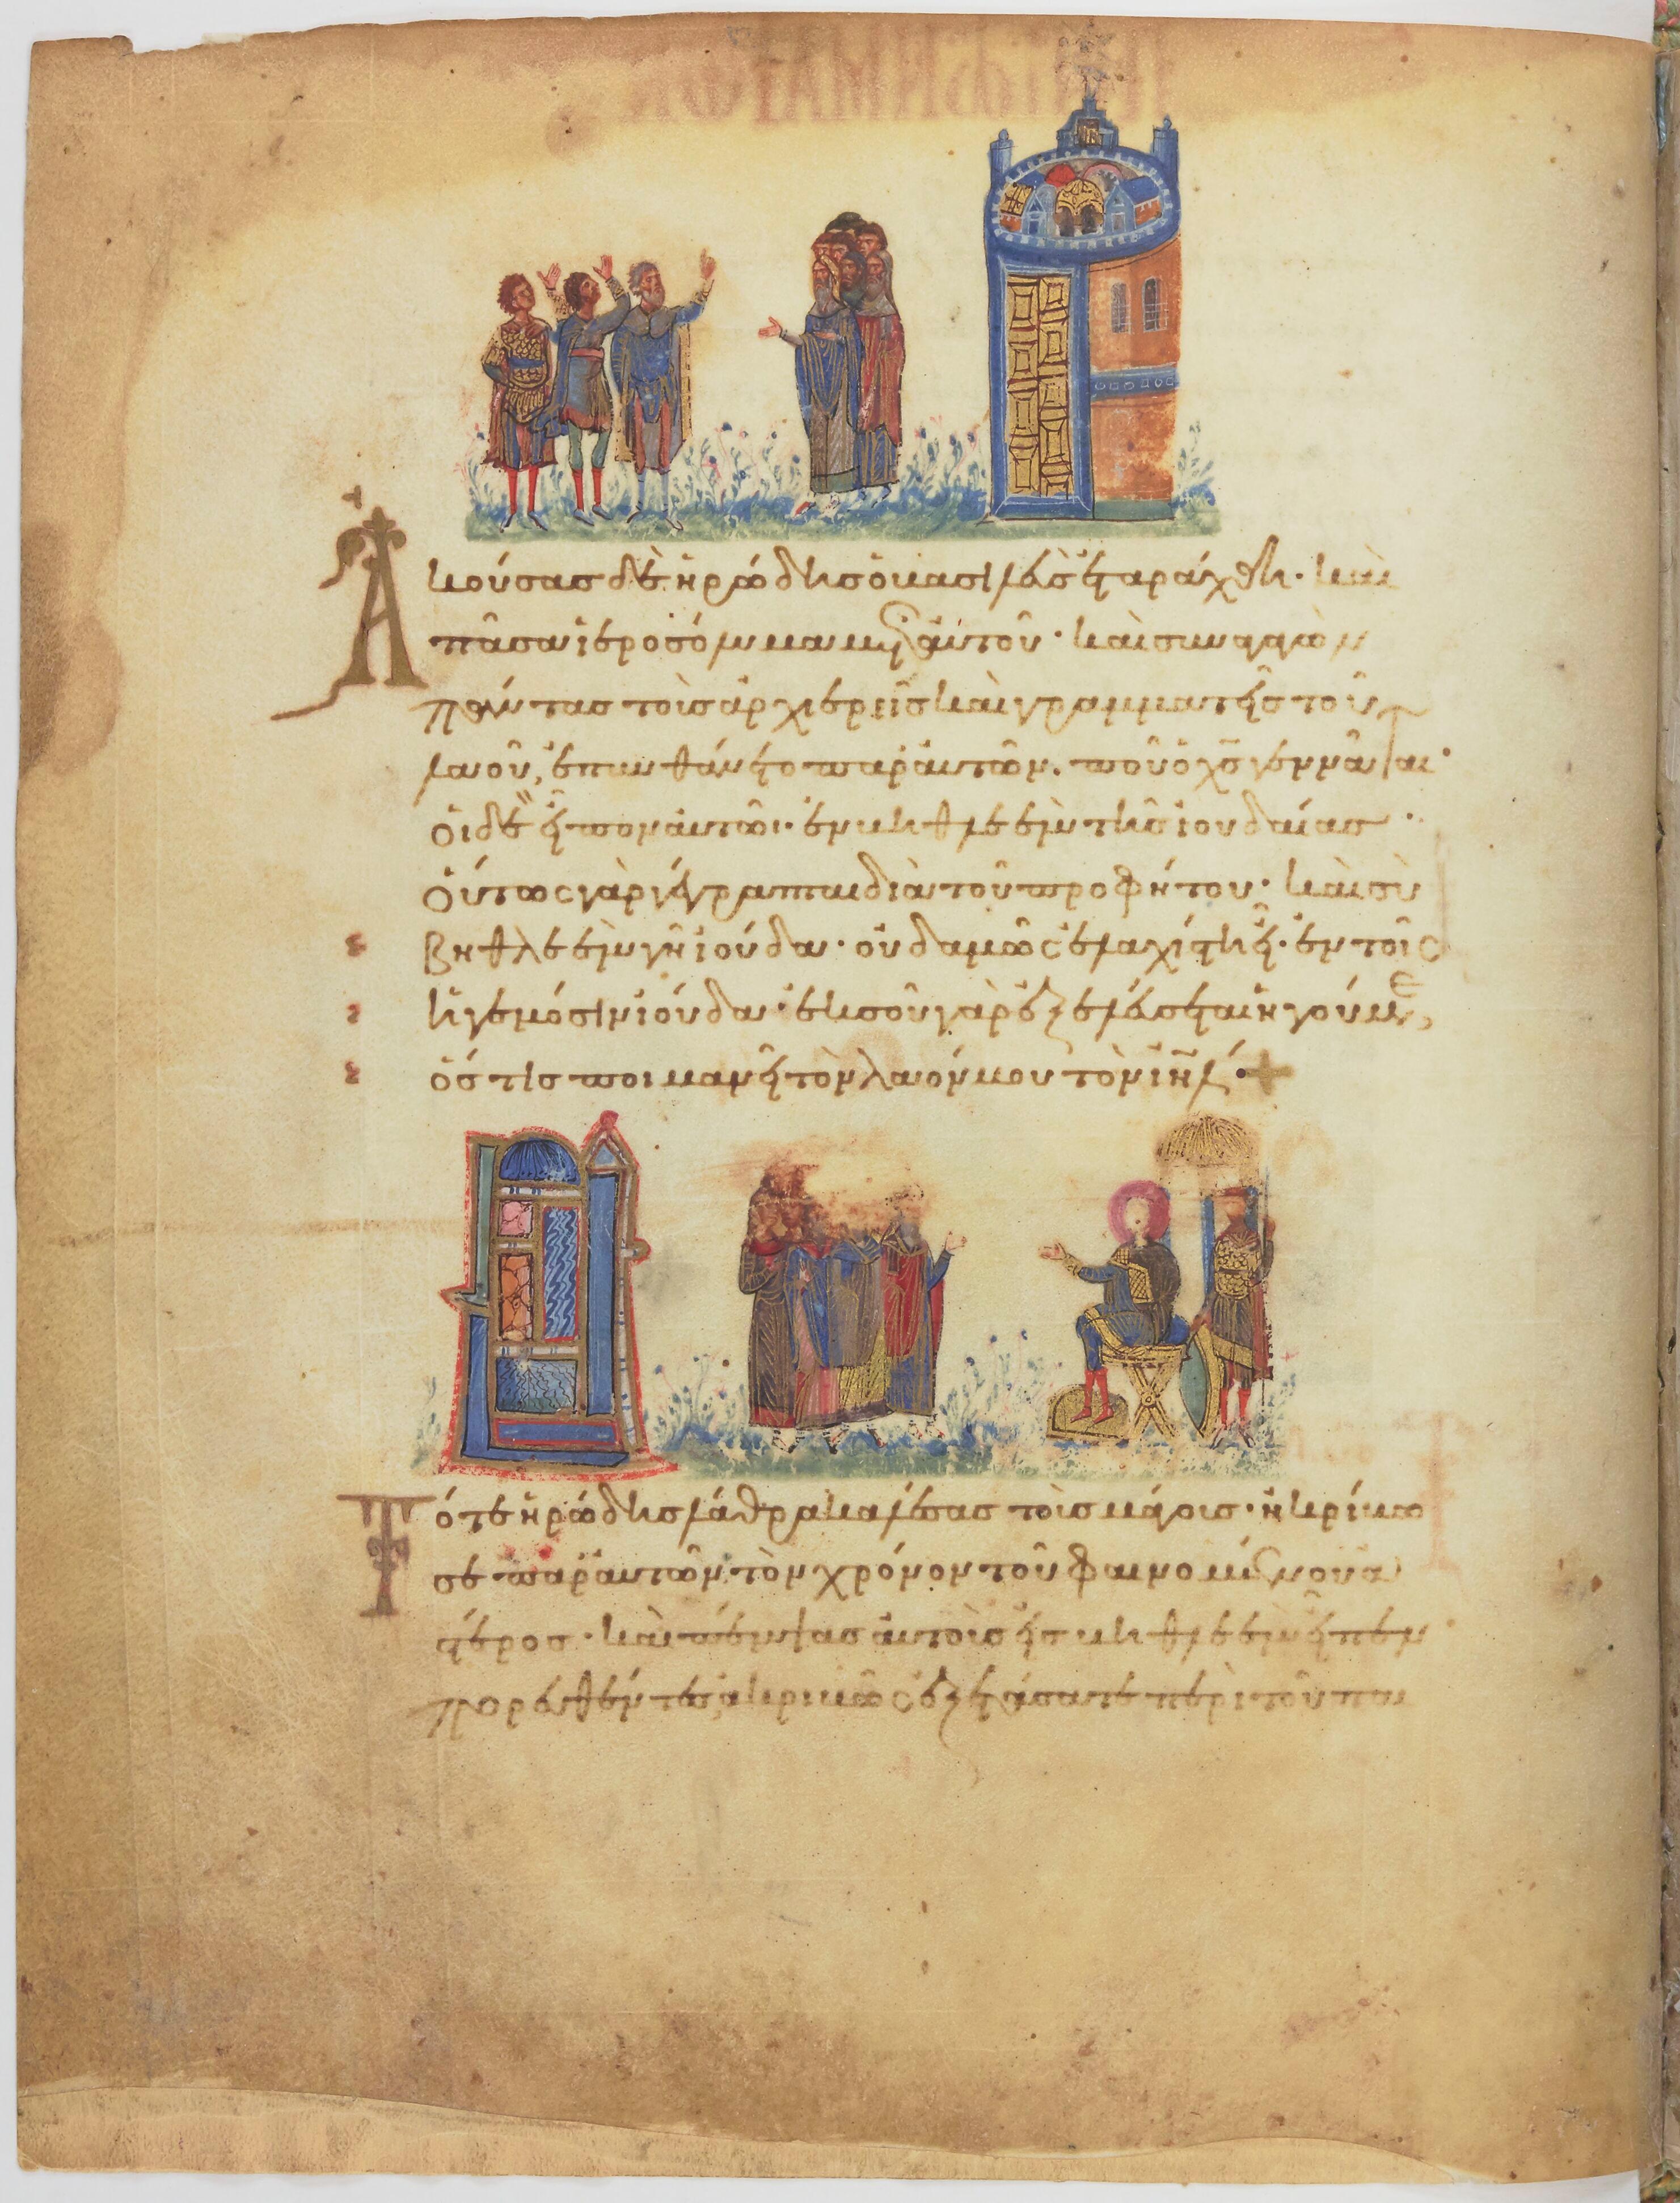 Ἀκούσας δὲ ἡρώδης ὁ βασιλεὺς ἐταράχθη· καὶ
πᾶσα ἱεροσόλυμα μετ αὐτοῦ· καὶ συναγαγὼν
πάντας τοὺς ἀρχιερεῖς καὶ γραμματεῖς τοῦ
λαοῦ, ἐπυνθάνετο παρ' αὐτῶν. ποῦ ὁ χς γεννᾶται·
οἱ δὲ εἶπον αὐτῶι· ἐν βηθλεὲμ τῆς ἰουδαίας·
οὕτως γὰρ γέγραπται διὰ τοῦ προφήτου· καὶ σὺ
βηθλεὲμ γῆ ἰούδα· οὐδαμῶς ἐλαχίστη εἶ· ἐν τοῖς
ἡγεμόσιν ἰούδα· ἐκ σοῦ γὰρ ἐξελεύσεται ἡγούμε
ὅστις ποιμανεῖ τὸν λαόν μου τὸν ιηλ·+
Τότε ἡρώδης λάθρα καλέσας τοὺς μάγους· ἠκρίβω
σε παρ' αὐτῶν τὸν χρόνον τοῦ φαινομένου ἀ
στέρος· καὶ πέμψας αὐτοὺς εἰς βηθλεὲμ εἶπεν
πορευθέντες, ἀκριβῶς ἐξετάσατε περὶ τοῦ παι